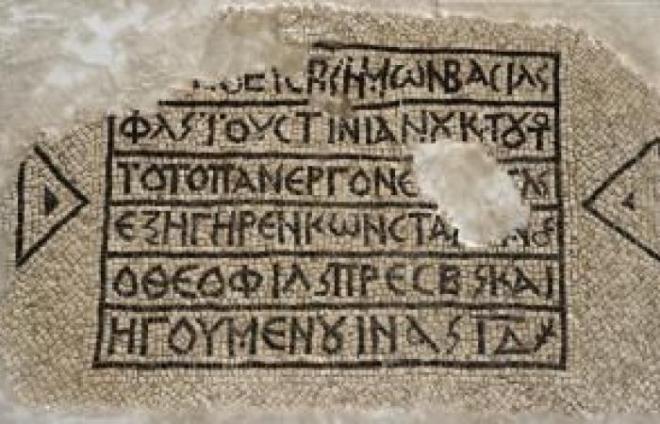 ΗΜωΝΒΑϹΙΛS
ΦΛSΙΟΥϹΤΙΝΙΑΝȢΚΤΟΥ
ΤΟΤΟΠΑΝΕΡΓΟΝΕ
ΕΞΗΓΗΡΕΝΚωΝϹΤΑ
ΟΘΕΟΦΙΛSΠΡΕϹΒSΚΑΙ
ΗΓΟΥΜΕΝȢΙΝΔSΙΔ